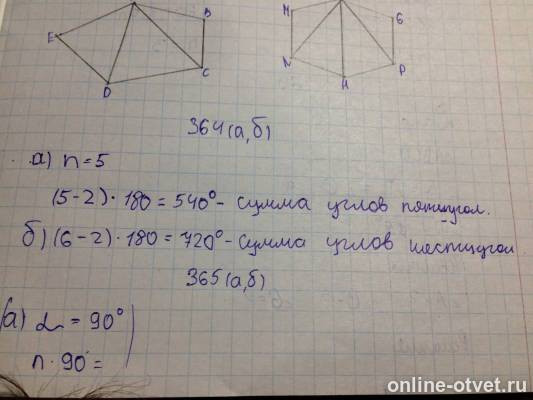 B
E
C
D
M
6
N
P
H
364(а,б)
а) n=5
(5-2)·180=540°- сумма углов пятиугол.
б) (6-2)·180=720°-сумма углов шестиугол
365(а,б)
(а) α=90°
n·90°=
online-otvet.ru